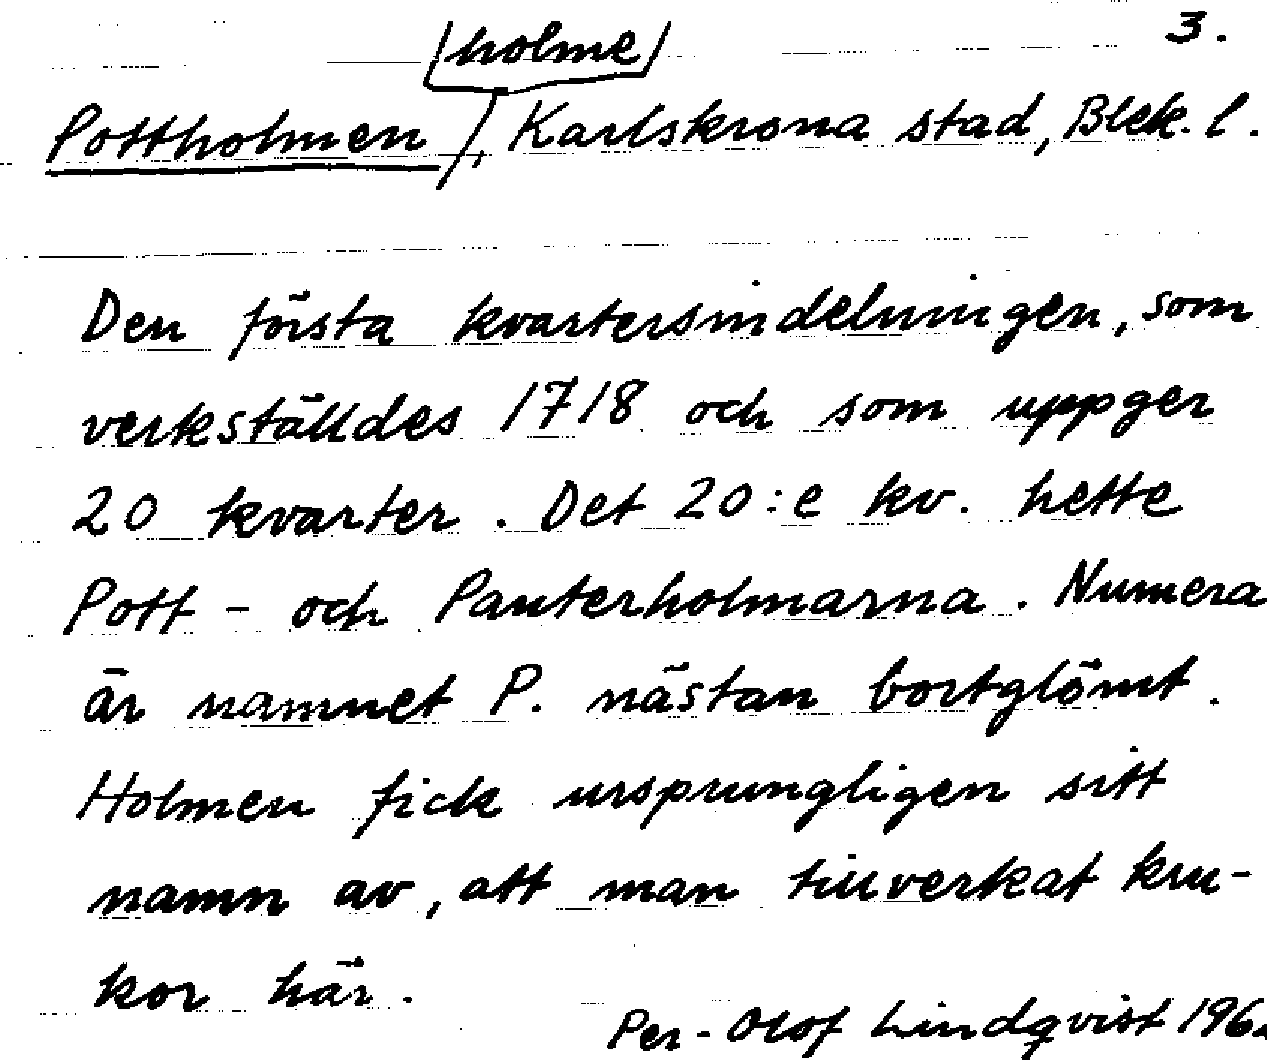 3.
holme
Pottholmen, Karlskrona stad, Blek. l.
Den första kvartersindelningen, som
verkställdes 1718 och som uppger
20 kvarter. Det 20:e kv. hette
Pott- och Panterholmarna. Numera
är namnet P. nästan bortglömt.
Holmen fick ursprungligen sitt
namn av, att man tillverkat kru-
kor här.
Per-Olof Lindqvist